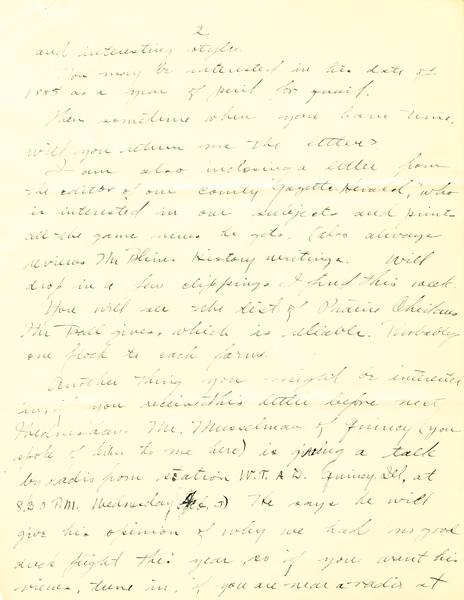 2
and interesting style.
You may be interested in his date of
1885 as a year of peril for quail.
Then sometime when you have time,
will you return me the letter?
I am also inclosing a letter from
the editor of our county "Gazette-Herald," who
is interested in our subjects and prints
all the game news he gets. (also always
reviews Mr Bline's History writings. Will
drop in a few clippings I find this week.
You will see the list of Prairie Chickens
Mr Ball gives, which is reliable. Probably
one flock to each farm.
Another thing you might be interested
in, if you receive this letter before next
Wednesday. Mr. Musselman of Quincy (you
spoke of him to me here) is giving a talk
by radio from station W.T.A.D. Quincy, Ill, at
8.30 P.M. Wednesday He says he will
give his opinion of why we had no good
duck flight this year, so if you want his
views, tune in, if you are near a radio at